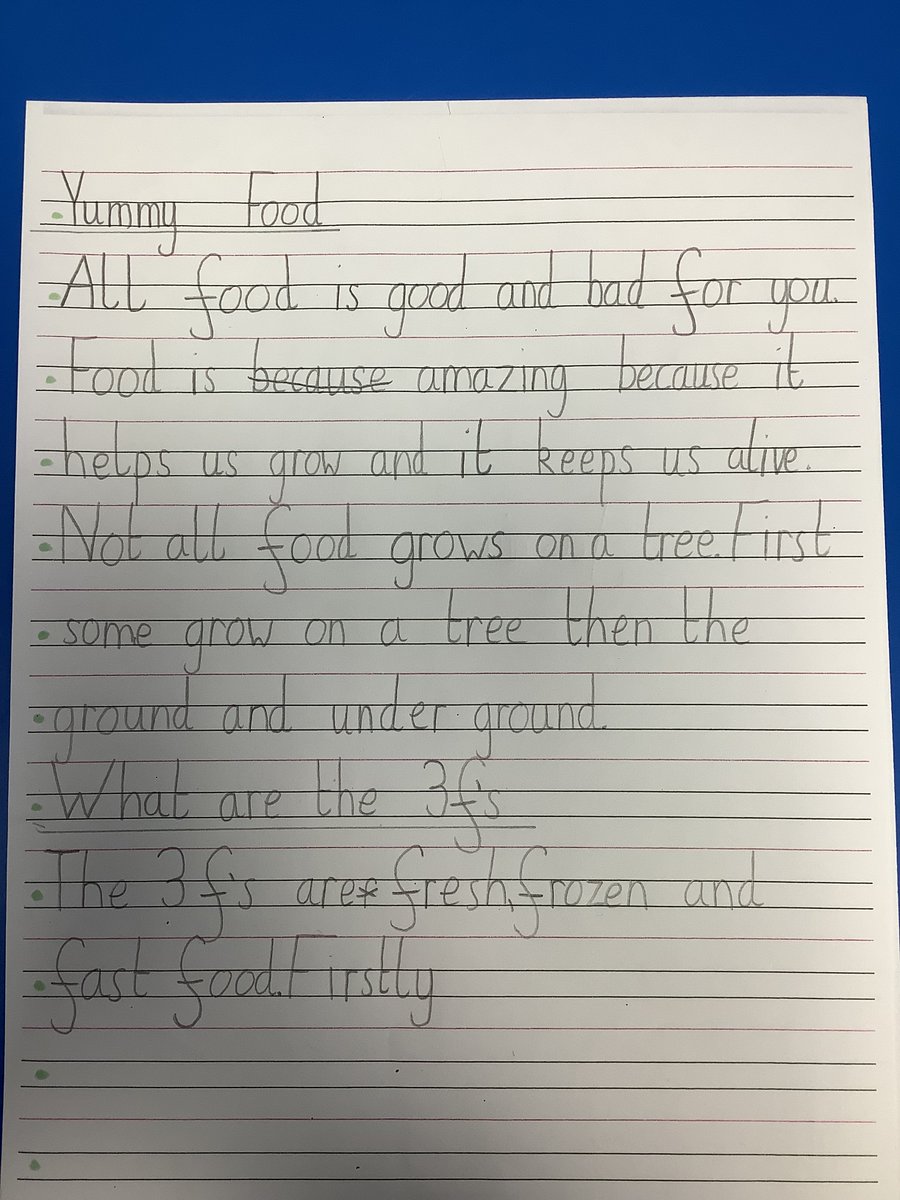 Yummy Food
All food is good and bad for you.
Food is because amazing because it
helps us grow and it keeps us alive.
Not all food grows on a tree. First
some grow on a tree then the
ground and under ground.
What are the 3 f's
The 3 f's are fresh, frozen and
fast food. Firstly